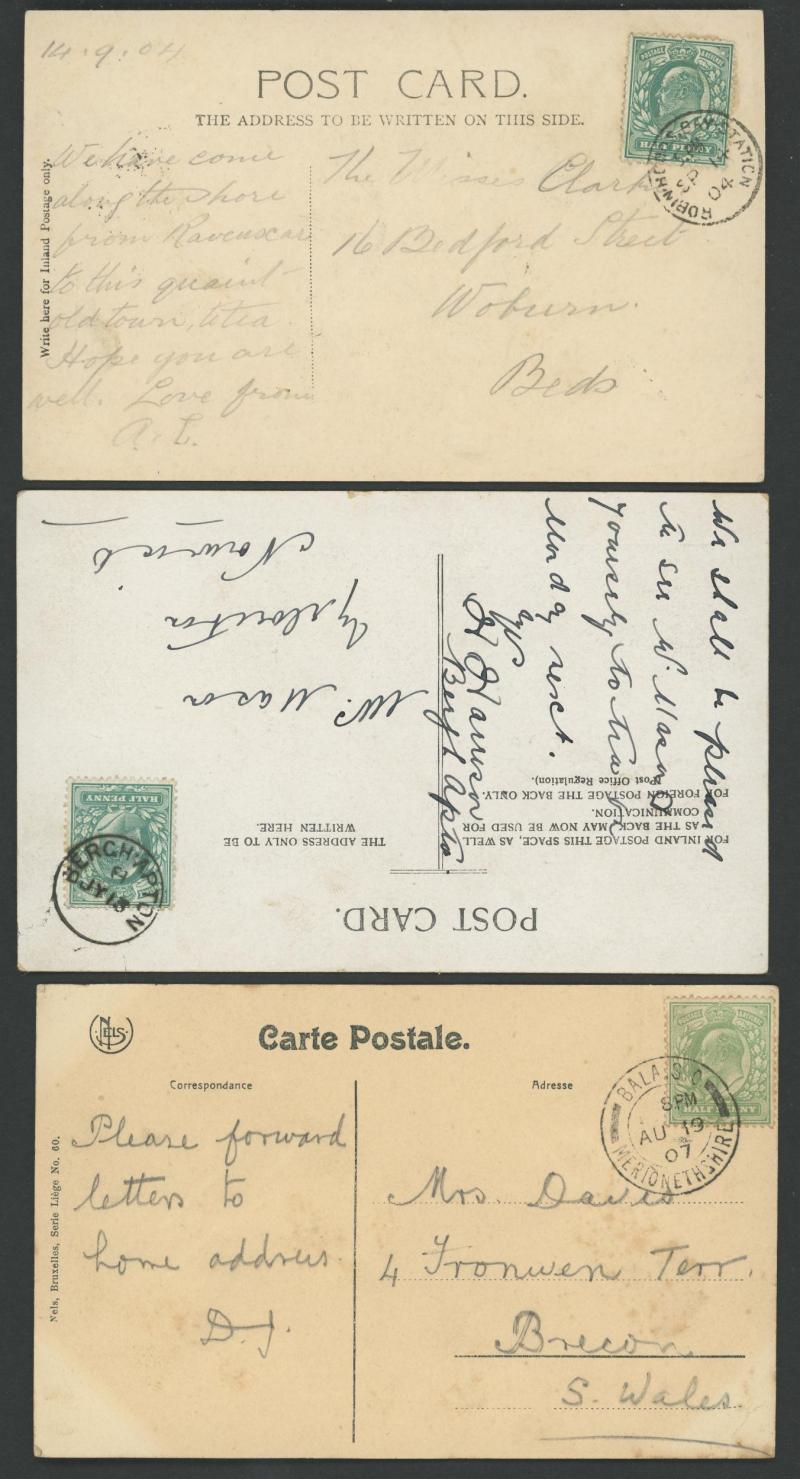 14.9.04
POST CARD.
THE ADDRESS TO BE WRITTEN ON THIS SIDE.
Write here for Inland Postage only.
We have come
along the shore
from Ravenscar
to this quaint
old town, to tea
Hope you are
well. Love from
A. L.
The Misses Clark
16 Bedford Street
Woburn.
Beds
POSTAGE REVENUE
HALF PENNY
STATION
SP
04
POST CARD.
FOR INLAND POSTAGE THIS SPACE, AS WELL
AS THE BACK, MAY NOW BE USED FOR
COMMUNICATION.
FOR FOREIGN POSTAGE THE BACK ONLY.
(Post Office Regulation).
THE ADDRESS ONLY TO BE
WRITTEN HERE.
We shall be pleased
to see W. Mason
Yourself to tea on
Monday next.
H Harrison
Bergh Apton
Mr. Mason
Norwich
HALF PENNY
BERGH-APTON
NELS
Carte Postale.
Correspondance
Adresse
Nels, Bruxelles, Serie Liège No. 60.
Please forward
letters to
home address.
D.J.
Mrs. Davies
4 Fronwen Terr.
Brecon
S. Wales.
POSTAGE REVENUE
HALF PENNY
BALA. S.O
8 PM
AU 19
07
MERIONETHSHIRE